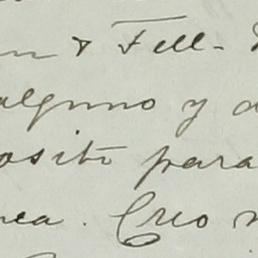 n & Fell-
alguno y d
osito para
nea. Creo n